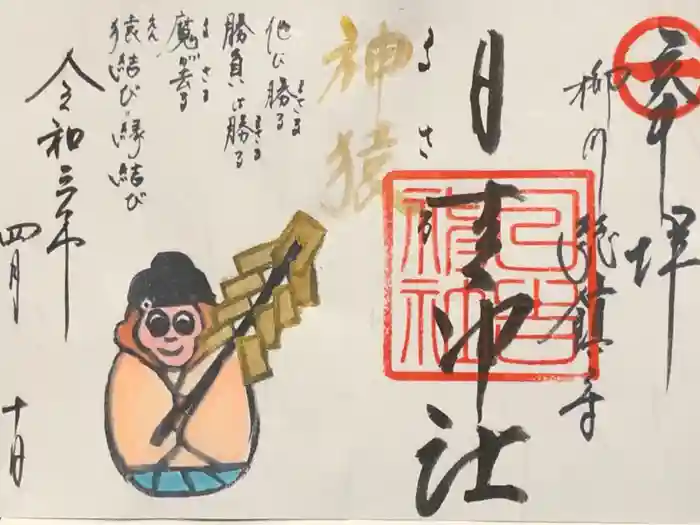 奉拝
柳川総鎮守
日吉神社
日吉神社
まさる
神猿
他に勝る
まさる
勝負に勝る
まさる
魔が去る
まさる
猿結び・縁結び
えん
令和三年
四月 十日